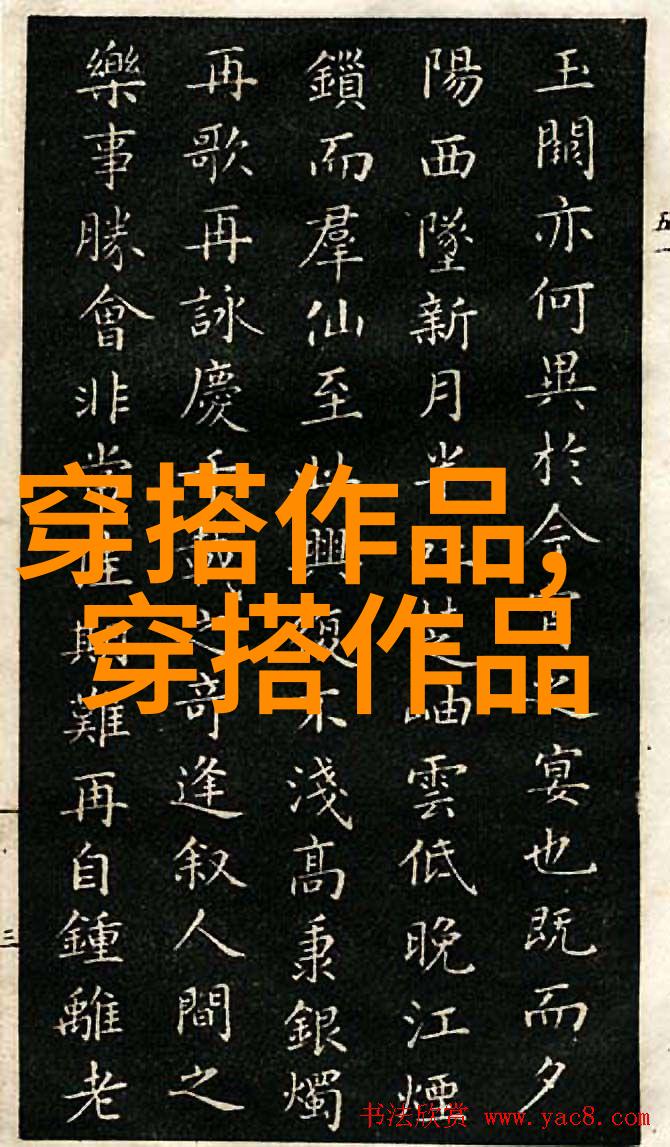 玉闕亦何異於今宵之宴也既而夕
陽西墜新月半吐芝岫雲低晚江煙
鎖而羣仙至此興復不淺高秉銀燭
再歌再詠慶千載之奇逢叙人間之
樂事勝會非常佳期難再自鍾離老
穿搭作品,
穿搭作品
三
书法欣赏 www.yac8.com